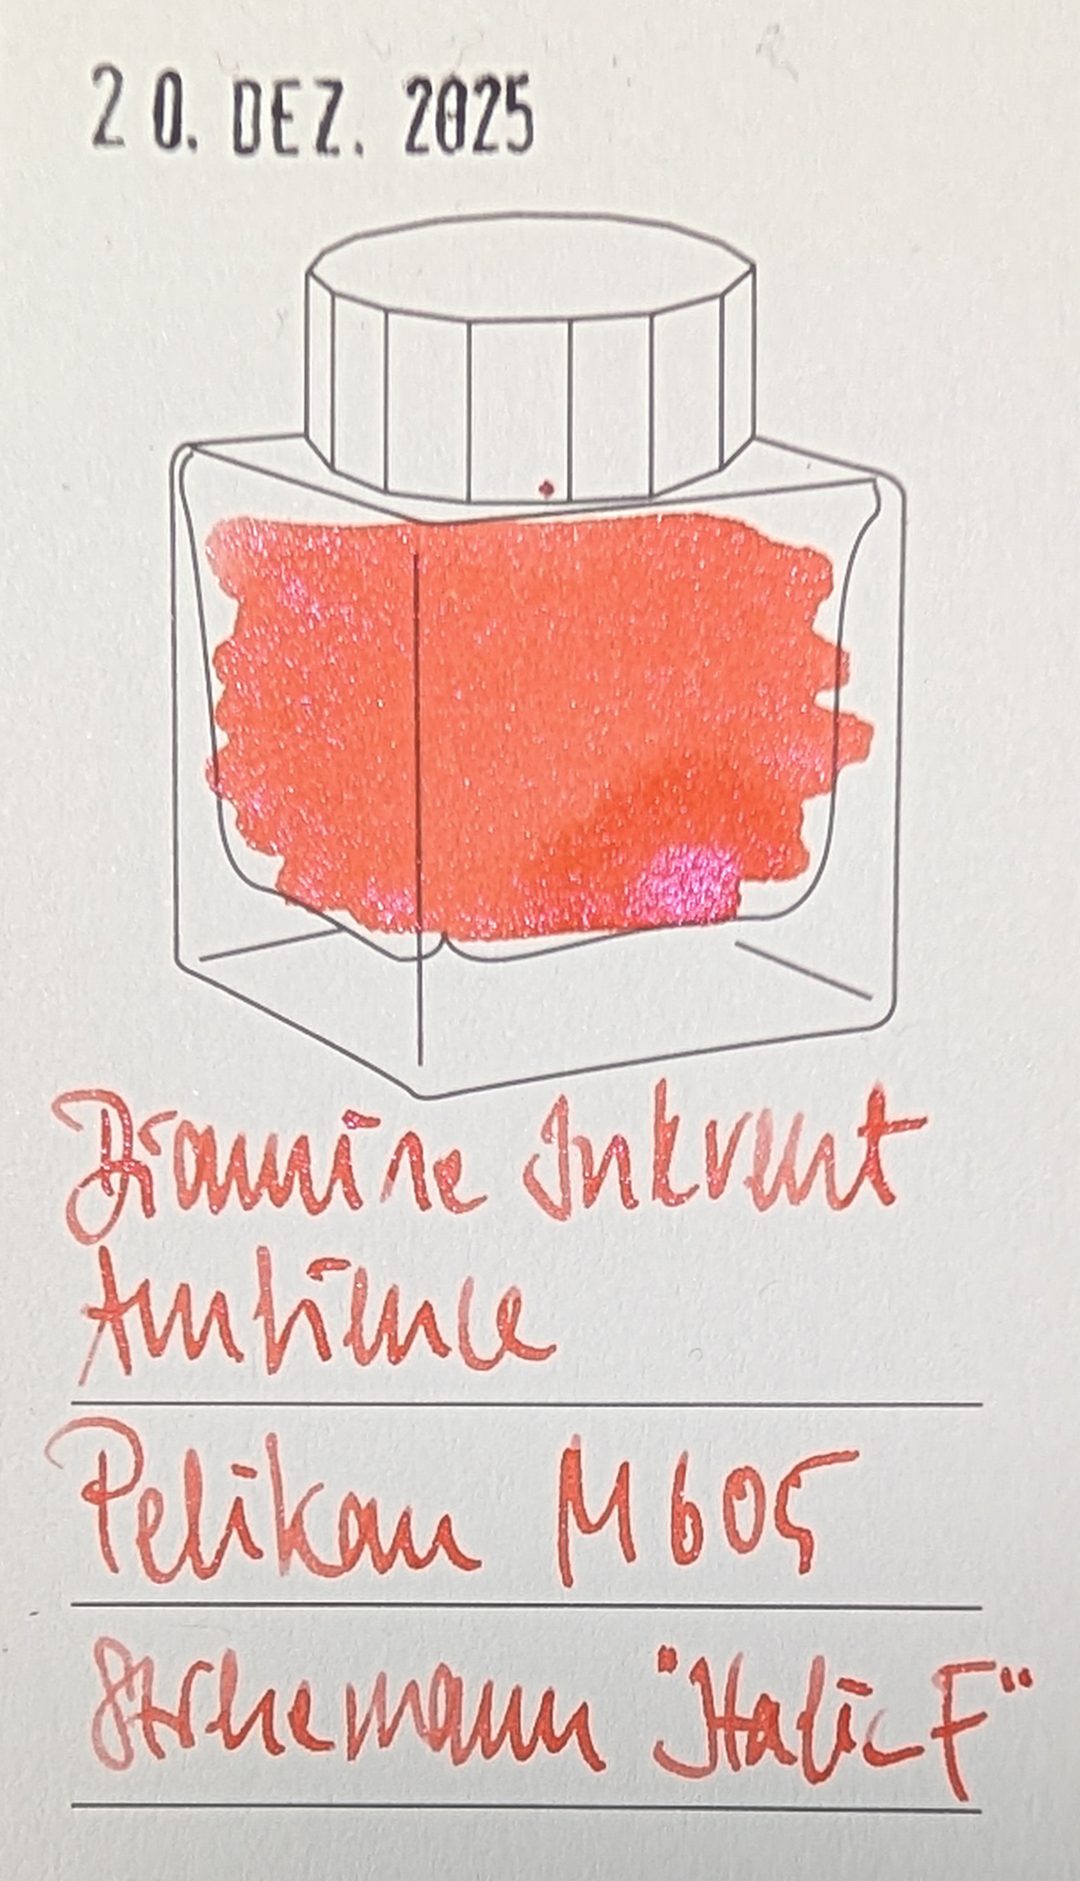 20. DEZ. 2025
Diamine Inkvent
Ambience
Pelikan M605
"Italic F"